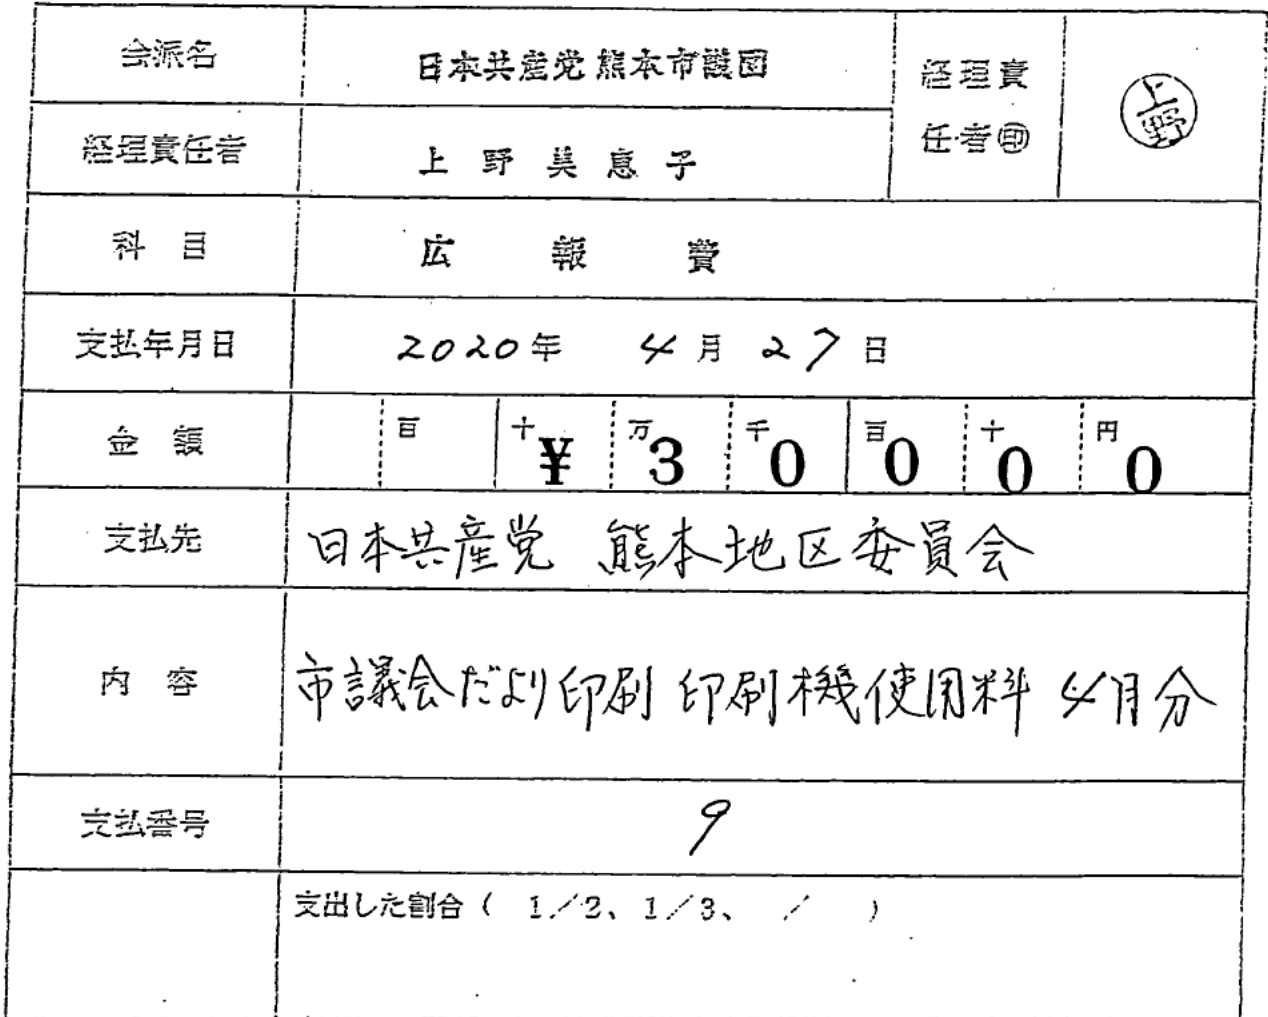 会派名 日本共産党 熊本市議団 経理責任者㊞ 上野
経理責任者 上野美恵子
科目 広報費
支払年月日 2020年 4月 27日
金額 百 十 ¥ 万 3 千 0 百 0 十 0 円 0
支払先 日本共産党 熊本地区委員会
内容 市議会だより印刷 印刷機使用料 4月分
支払番号 9
支出した割合( 1/2、1/3、 / )